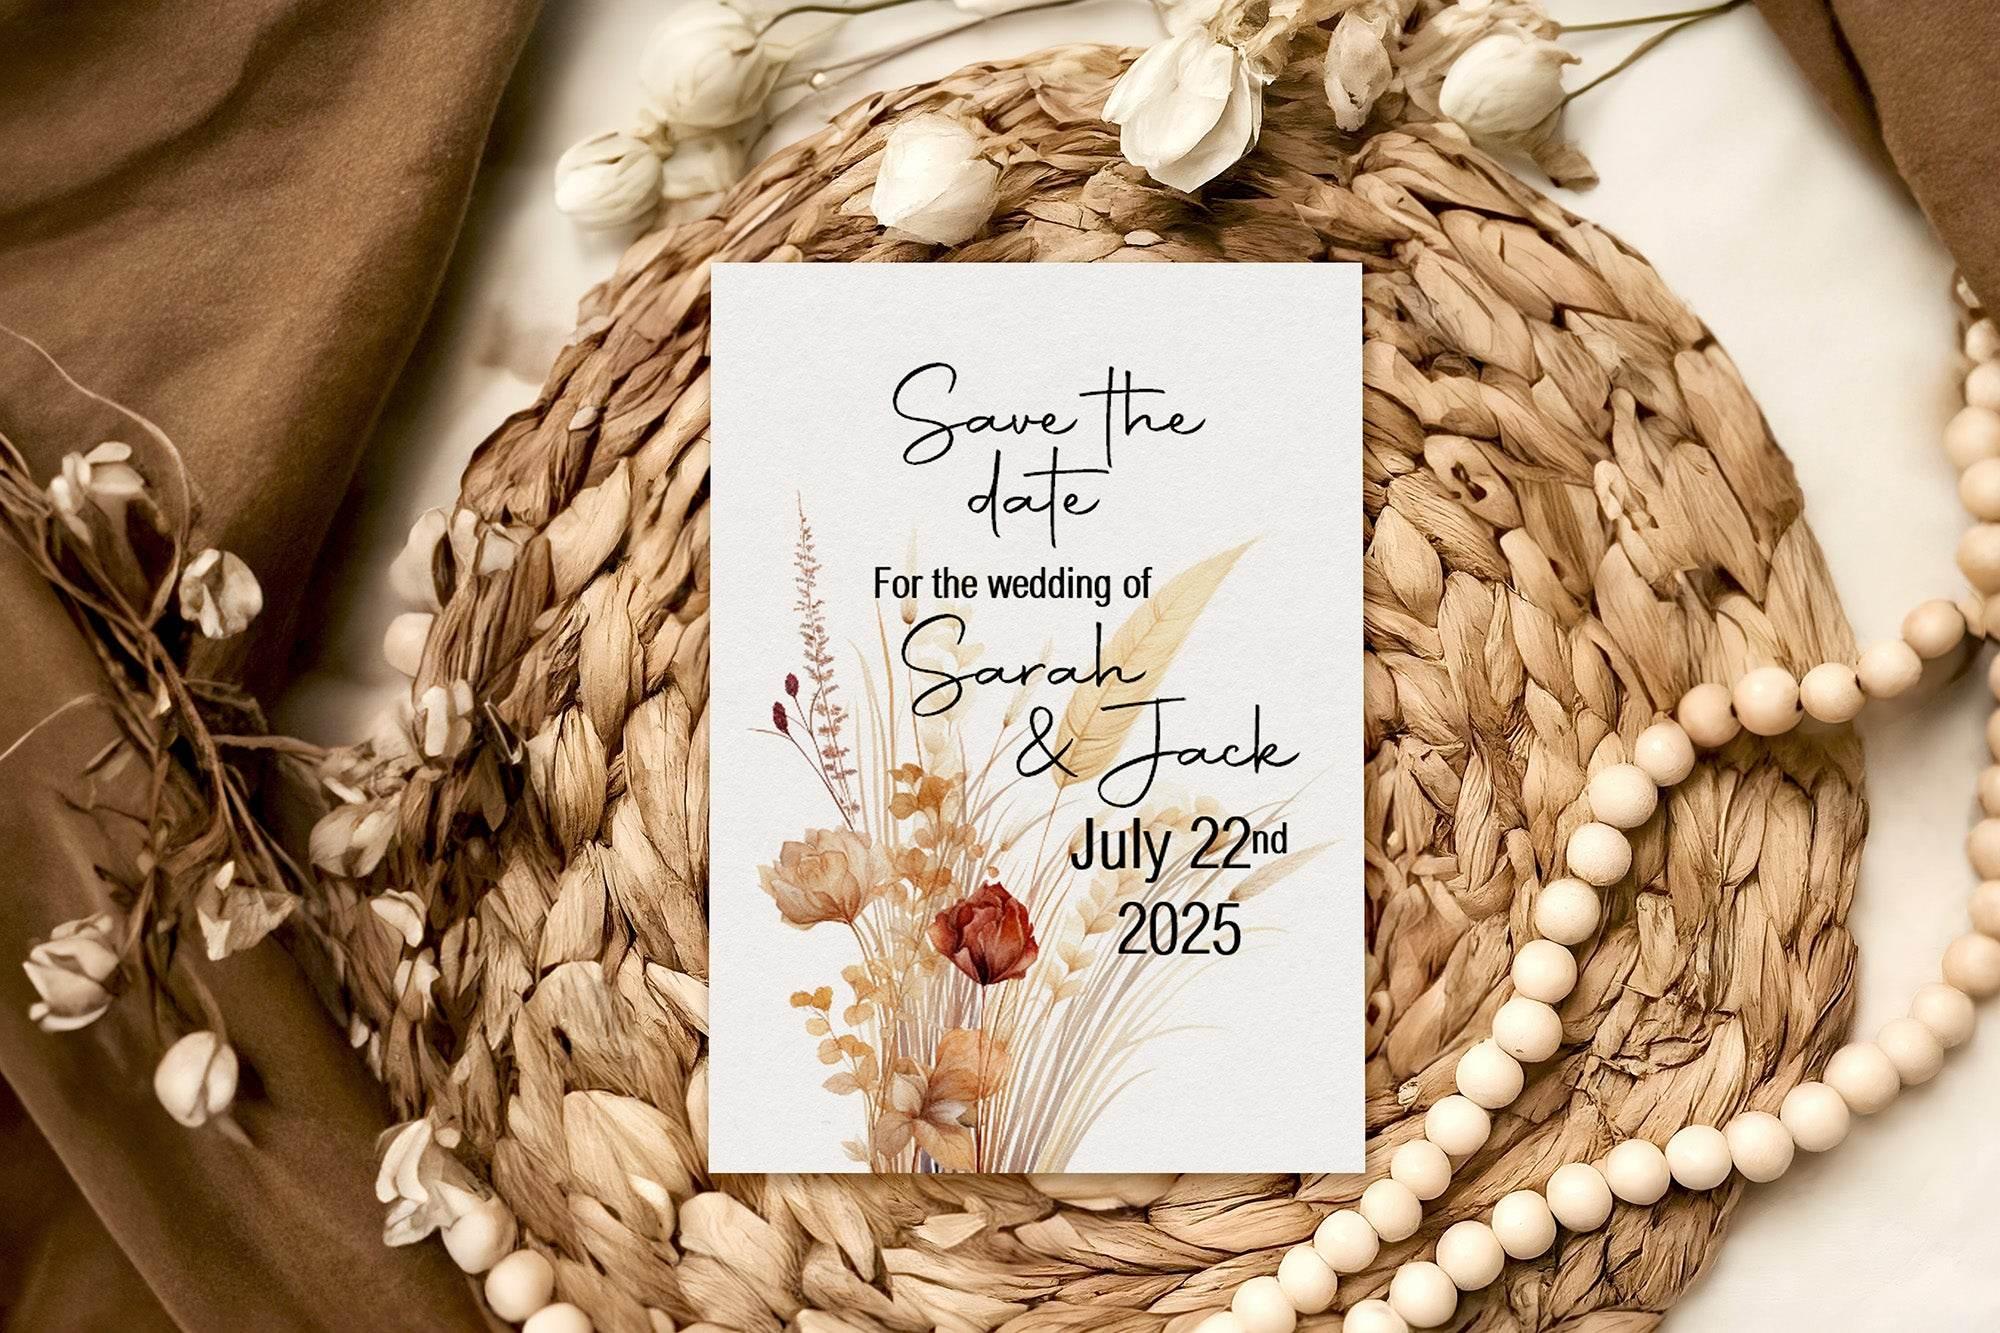 Save the
date
For the wedding of
Sarah
& Jack
July 22nd
2025